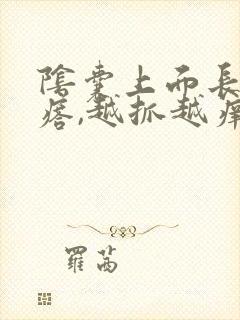 陰囊上而長
瘩,越抓越癢
羅茜